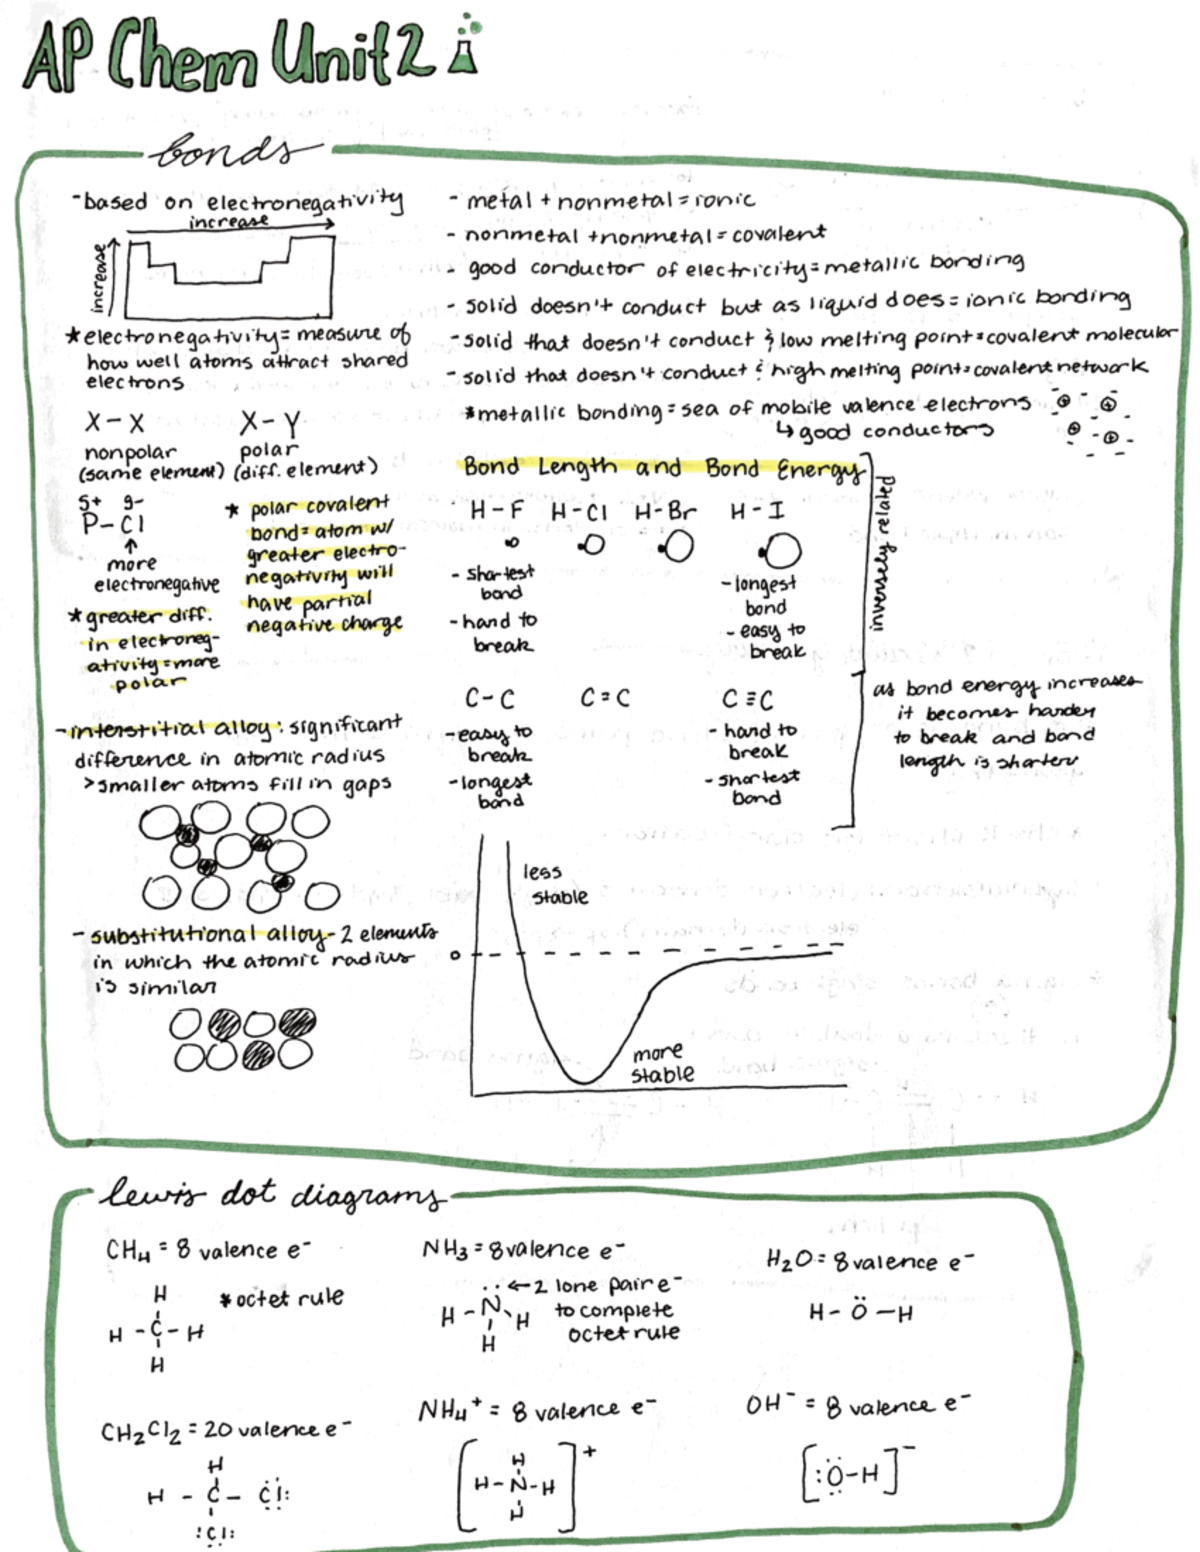 AP Chem Unit 2
bonds
-based on electronegativity
increase
increase
*electronegativity= measure of
how well atoms attract shared
electrons
X - X
nonpolar
(same element)
X - Y
polar
(diff. element)
δ+ δ-
P-Cl
↑
more
electronegative
* polar covalent
bond= atom w/
greater electro-
negativity will
have partial
negative charge
*greater diff.
in electroneg-
ativity=more
polar
-interstitial alloy: significant
difference in atomic radius
>smaller atoms fill in gaps
- substitutional alloy-2 elements
in which the atomic radius
is similar
- metal + nonmetal = ionic
- nonmetal +nonmetal = covalent
- good conductor of electricity=metallic bonding
- solid doesn't conduct but as liquid does = ionic bonding
-solid that doesn't conduct & low melting point=covalent molecular
-solid that doesn't conduct & high melting point=covalent network
*metallic bonding = sea of mobile valence electrons
↳good conductors
Bond Length and Bond Energy
H-F H-Cl H-Br H-I
- shortest
bond
-hard to
break
-longest
bond
-easy to
break
inversely related
C-C C=C C≡C
-easy to
break
-longest
bond
- hard to
break
- shortest
bond
as bond energy increases
it becomes harder
to break and bond
length is shorter
less
stable
0
more
stable
lewis dot diagrams
CH4 = 8 valence e-
*octet rule
H
H - C - H
H
NH3 = 8 valence e-
←2 lone pair e-
to complete
octet rule
H - N - H
H
H2O = 8 valence e-
H - Ö - H
CH2Cl2 = 20 valence e-
H
H - C - Cl:
:Cl:
NH4+ = 8 valence e-
[H
H-N-H
H]+
OH- = 8 valence e-
[:Ö-H]-